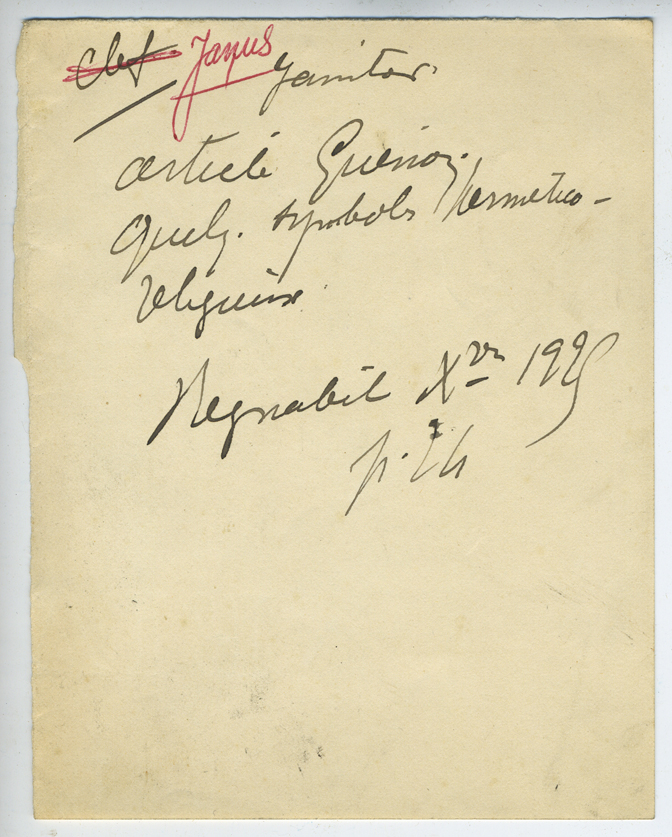 clef Janus Janitor
article Guénon.
Quelq. symboles hermético-
religieux.
Regnabit Xbre 1925
p.